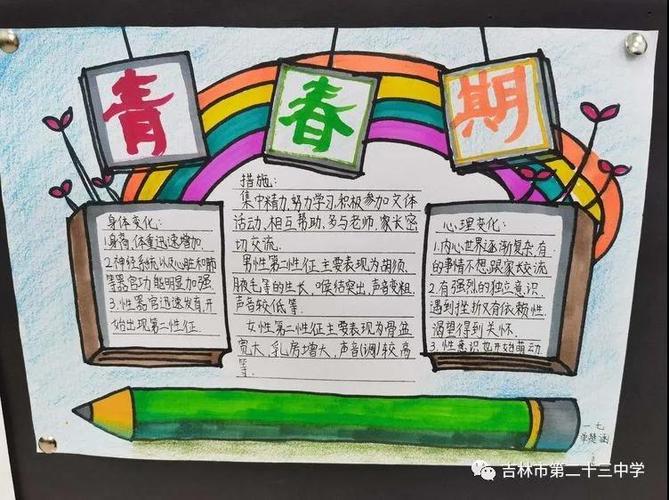 青春期
身体变化:
1.身高、体重迅速增加.
2.神经系统以及心脏和肺
等器官功能明显加强.
3.性器官迅速发育,开
始出现第二性征.
措施:
集中精力,努力学习,积极参加文体
活动,相互帮助,多与老师,家长密
切交流.
男性第二性征主要表现为胡须,
腋毛等的生长,喉结突出,声音变粗,
声音较低等.
女性第二性征主要表现为骨盆
宽大,乳房增大,声音(调)较高
等.
心理变化:
1.内心世界逐渐复杂,有
的事情不想跟家长交流
2.有强烈的独立意识,
遇到挫折又有依赖性,
渴望得到关怀.
3.性意识也开始萌动
一七
吉林市第二十三中学